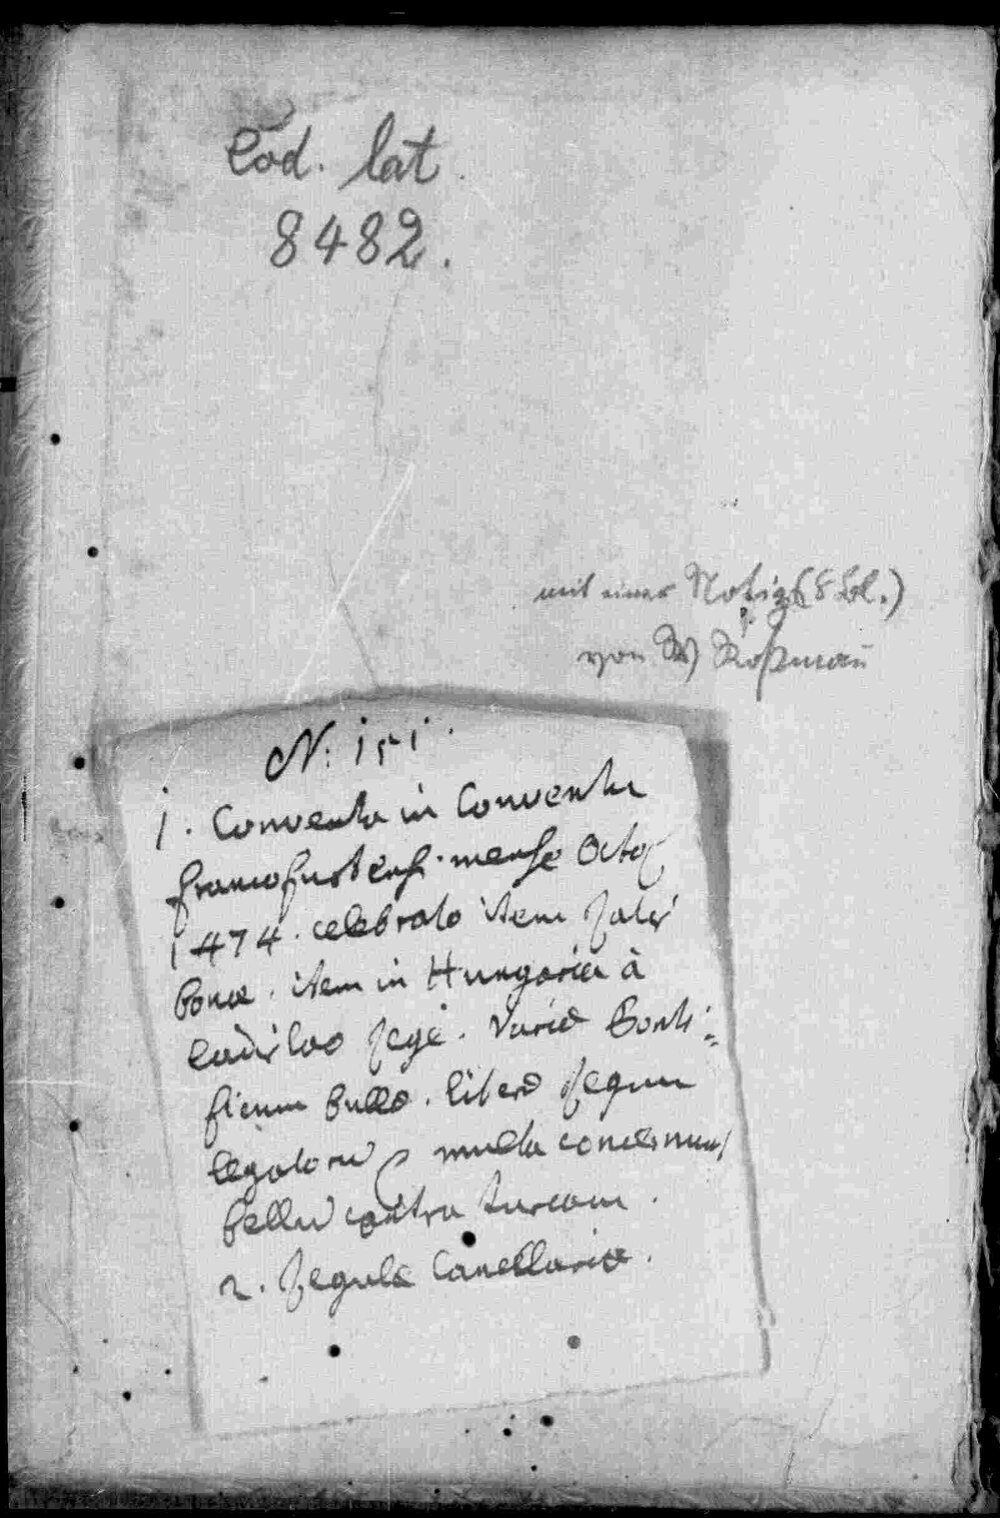 Cod. lat.
8482.
mit einer Notiz (8 Bl.)
von W
N: 151.
1. Conventa in Conventu
francofurtensi mense Octob
1474. celebrato item Ratis
bonæ. item in Hungaria à
ladislao Rege. Variæ Ponti=
ficum bullæ. literæ Regum
legatorū multa concernunt
bellū contra turcam.
2. Regulæ Cancellariæ.